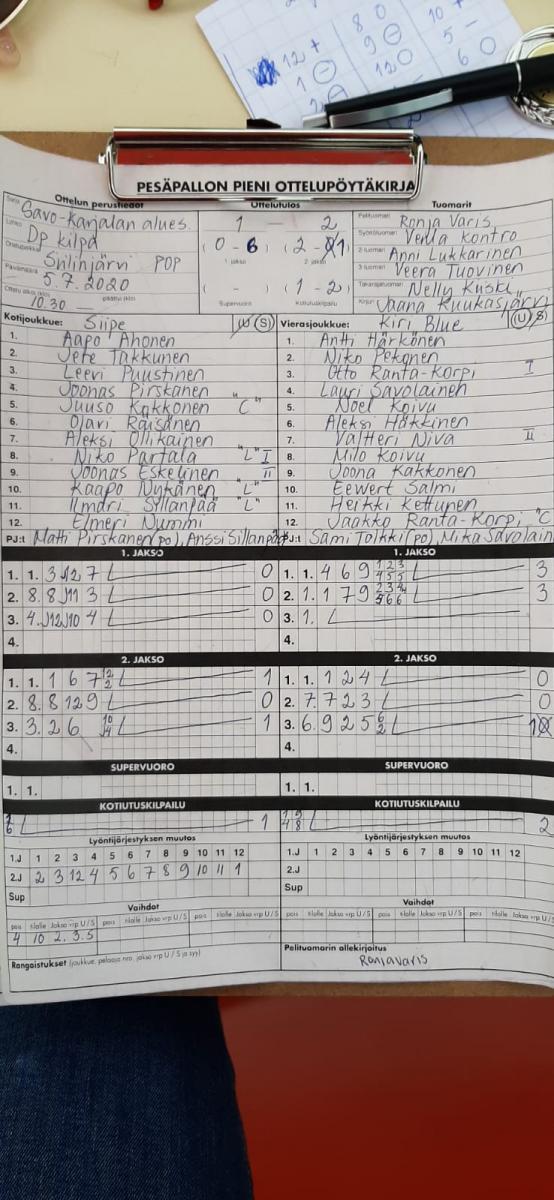 12 + 8 0 10 +
1 ⊖ 9 ⊖ 5 -
2 ⊖ 12 0 6 0
PESÄPALLON PIENI OTTELUPÖYTÄKIRJA
Ottelun perustiedot Ottelutulos Tuomarit
Sarja Savo-Karjalan alues. 1 - 2 Pelituomari Ronja Varis
Lohko Dp kilpa (0 - 6) (2 - 1) Syöttötuomari Venla Kontro
Ottelupaikka Siilinjärvi POP 1 jakso 2 jakso 2-tuomari Anni Lukkarinen
Päivämäärä 5.7.2020 ( - ) (1 - 2) 3-tuomari Veera Tuovinen
Ottelu alkoi (klo) 10.30 päättyi (klo) Supervuoro Kotiutuskilpailu Takarajatuomari Nelly Kuski
Kirjuri Jaana Ruukasjärvi
Kotijoukkue: Siipe U (S) Vierasjoukkue: Kiri, Blue (U) S
1. Aapo Ahonen 1. Antti Härkönen
2. Jete Takkunen 2. Niko Pekonen
3. Leevi Puustinen 3. Otto Ranta-Korpi I
4. Joonas Pirskanen 4. Lauri Savolainen
5. Juuso Kakkonen "C" 5. Noel Koivu
6. Olavi Räisänen 6. Aleksi Häkkinen
7. Aleksi Ollikainen 7. Valtteri Niva II
8. Niko Partala "L" I 8. Milo Koivu
9. Joonas Eskelinen II 9. Joona Kakkonen
10. Kaapo Nykänen "L" 10. Eewert Salmi
11. Ilmari Syllänpää "L" 11. Heikki Kettunen
12. Elmeri Nummi 12. Jaakko Ranta-Korpi "C
PJ:t Matti Pirskanen (po), Anssi Sillanpää PJ:t Sami Tolkki (po), Mika Savolain
1. JAKSO 1. JAKSO
1. 1. 3 12 7 0 1. 1. 4 6 9 1 2 3 4 5 5 3
2. 8. 8 11 3 0 2. 1. 1 7 9 2 3 4 5 6 6 3
3. 4. 12 10 4 0 3. 1.
4. 4.
2. JAKSO 2. JAKSO
1. 1. 1 6 7 12 2 1 1. 1. 1 2 4 0
2. 8. 8 12 9 0 2. 7. 7 2 3 0
3. 3. 2 6 10 4 1 3. 6. 9 2 5 6 2 1
4. 4.
SUPERVUORO SUPERVUORO
1. 1. 1. 1.
KOTIUTUSKILPAILU KOTIUTUSKILPAILU
1 6 1 1 9 4 8 2
Lyöntijärjestyksen muutos Lyöntijärjestyksen muutos
1.J 1 2 3 4 5 6 7 8 9 10 11 12 1.J 1 2 3 4 5 6 7 8 9 10 11 12
2.J 2 3 12 4 5 6 7 8 9 10 11 1 2.J
Sup Sup
Vaihdot Vaihdot
pois tilalle Jakso vrp U / S pois tilalle Jakso vrp U / S pois tilalle Jakso vrp U / S pois tilalle Jakso vrp U / S
4 10 2. 3. S
Rangaistukset (joukkue, pelaaja nro, jakso vrp U / S ja syy) Pelituomarin allekirjoitus
Ronja Varis